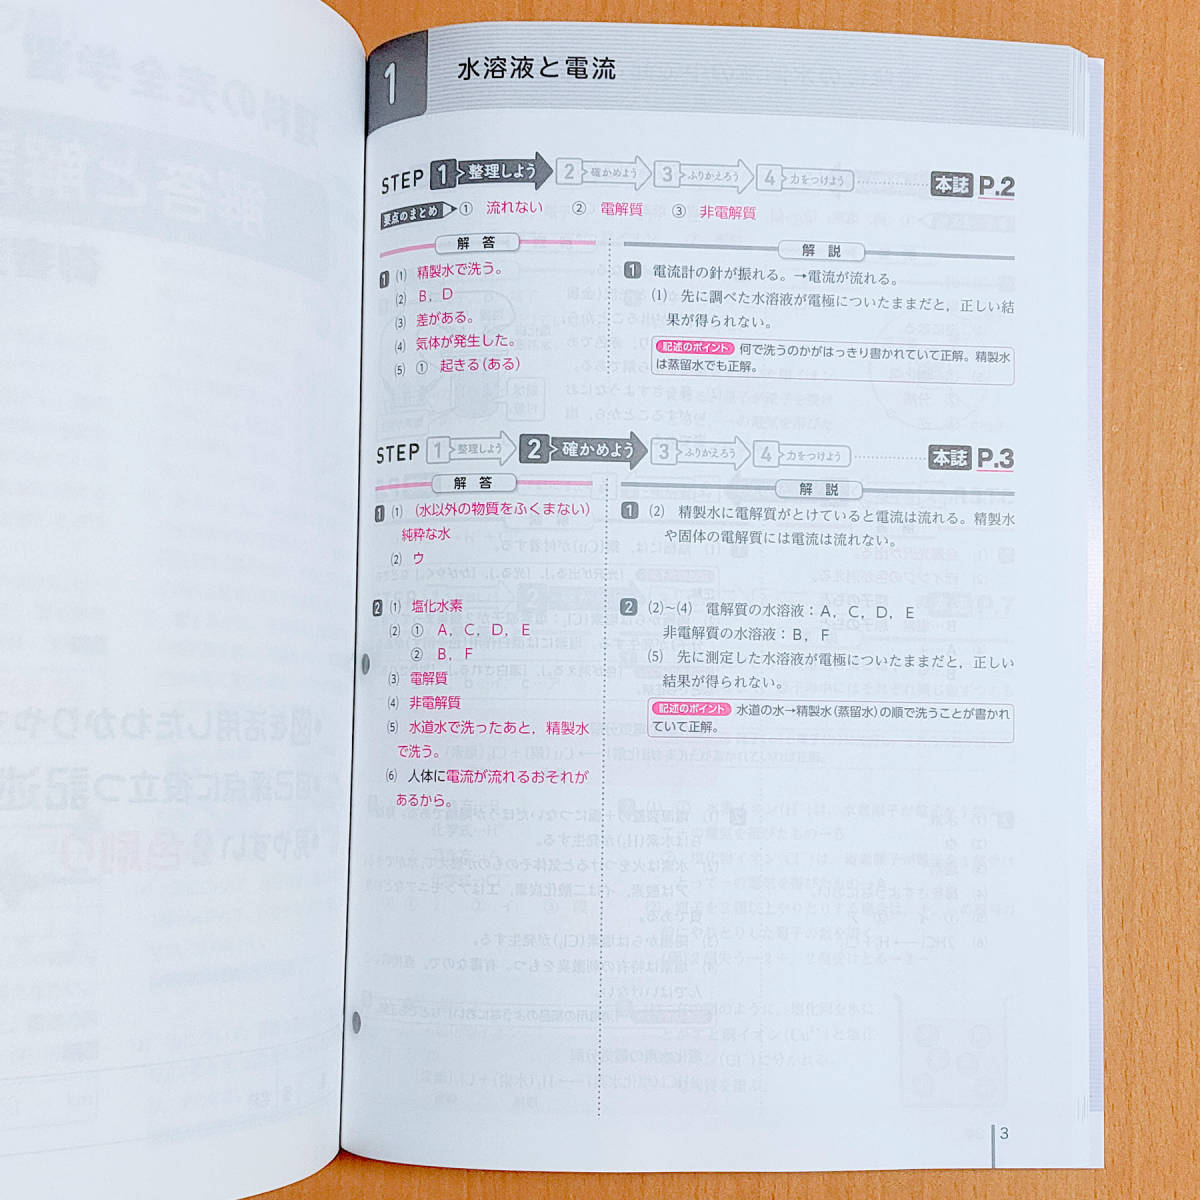 1 水溶液と電流
STEP 1 整理しよう 2 確かめよう 3 ふりかえろう 4 力をつけよう 本誌 P.2
要点のまとめ ① 流れない ② 電解質 ③ 非電解質
解答
1 (1) 精製水で洗う。
(2) B，D
(3) 差がある。
(4) 気体が発生した。
(5) ① 起きる(ある)
解説
1 電流計の針が振れる。→電流が流れる。
(1) 先に調べた水溶液が電極についたままだと，正しい結
果が得られない。
記述のポイント 何で洗うのかがはっきり書かれていて正解。精製水
は蒸留水でも正解。
STEP 1 整理しよう 2 確かめよう 3 ふりかえろう 4 力をつけよう 本誌 P.3
解答
1 (1) (水以外の物質をふくまない)
純粋な水
(2) ウ
2 (1) 塩化水素
(2) ① A，C，D，E
② B，F
(3) 電解質
(4) 非電解質
(5) 水道水で洗ったあと，精製水
で洗う。
(6) 人体に電流が流れるおそれが
あるから。
解説
1 (2) 精製水に電解質がとけていると電流は流れる。精製水
や固体の電解質には電流は流れない。
2 (2)~(4) 電解質の水溶液：A，C，D，E
非電解質の水溶液：B，F
(5) 先に測定した水溶液が電極についたままだと，正しい
結果が得られない。
記述のポイント 水道の水→精製水(蒸留水)の順で洗うことが書かれ
ていて正解。
3